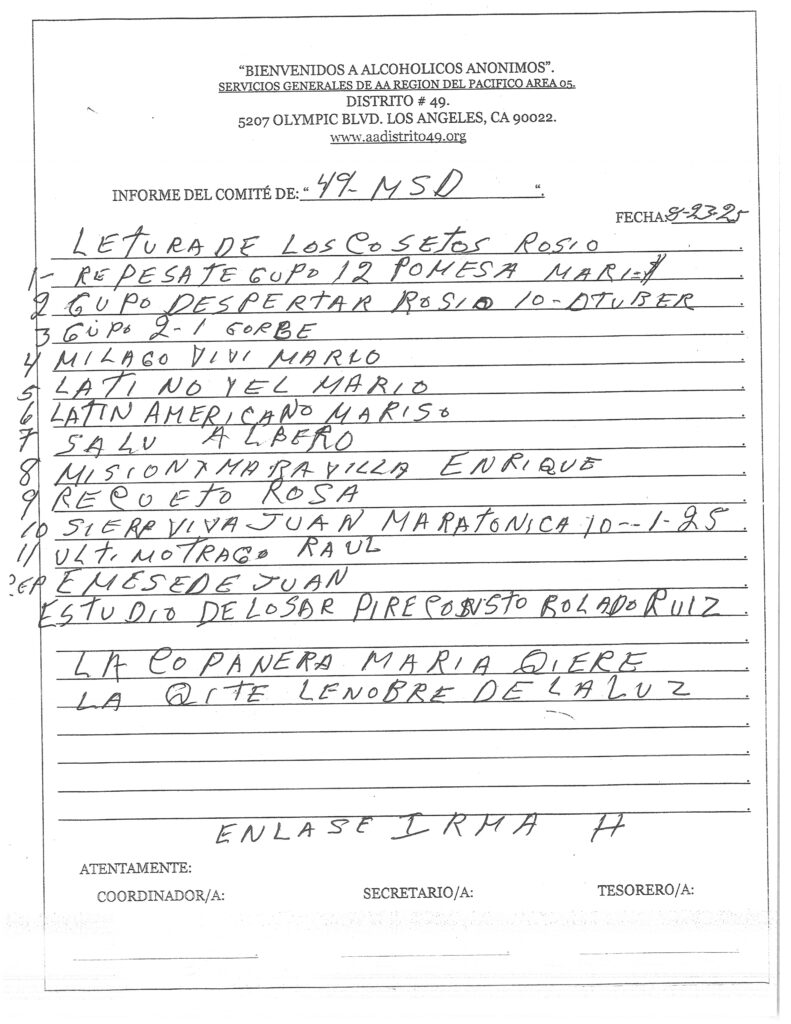 “BIENVENIDOS A ALCOHOLICOS ANONIMOS”.
SERVICIOS GENERALES DE AA REGION DEL PACIFICO AREA 05.
DISTRITO # 49.
5207 OLYMPIC BLVD. LOS ANGELES, CA 90022.
www.aadistrito49.org
INFORME DEL COMITÉ DE: “ 49- MSD “.
FECHA: 8-23-25
LETURA DE LOS COSETOS ROSIO
1- REPESATE GUPO 12 POMESA MARI
2 GUPO DESPERTAR ROSIO 10-OTUBER
3 GUPO 2-1 GORBE
4 MILAGO VIVI MARIO
5 LATINO YEL MARIO
6 LATIN AMERICANO MARISO
7 SALU ALBERO
8 MISION X MARAVILLA ENRIQUE
9 REQUETO ROSA
10 SIERR VIVA JUAN MARATONICA 10--1-25
11 ULTIMOTRAGO RAUL
EMESEDE JUAN
ESTUDIO DE LOSAR ROLADO RUIZ
LA COPANERA MARIA QIERE
LA QITE LENOBRE DE LA LUZ
ENLASE IRMA H
ATENTAMENTE:
COORDINADOR/A: SECRETARIO/A: TESORERO/A: